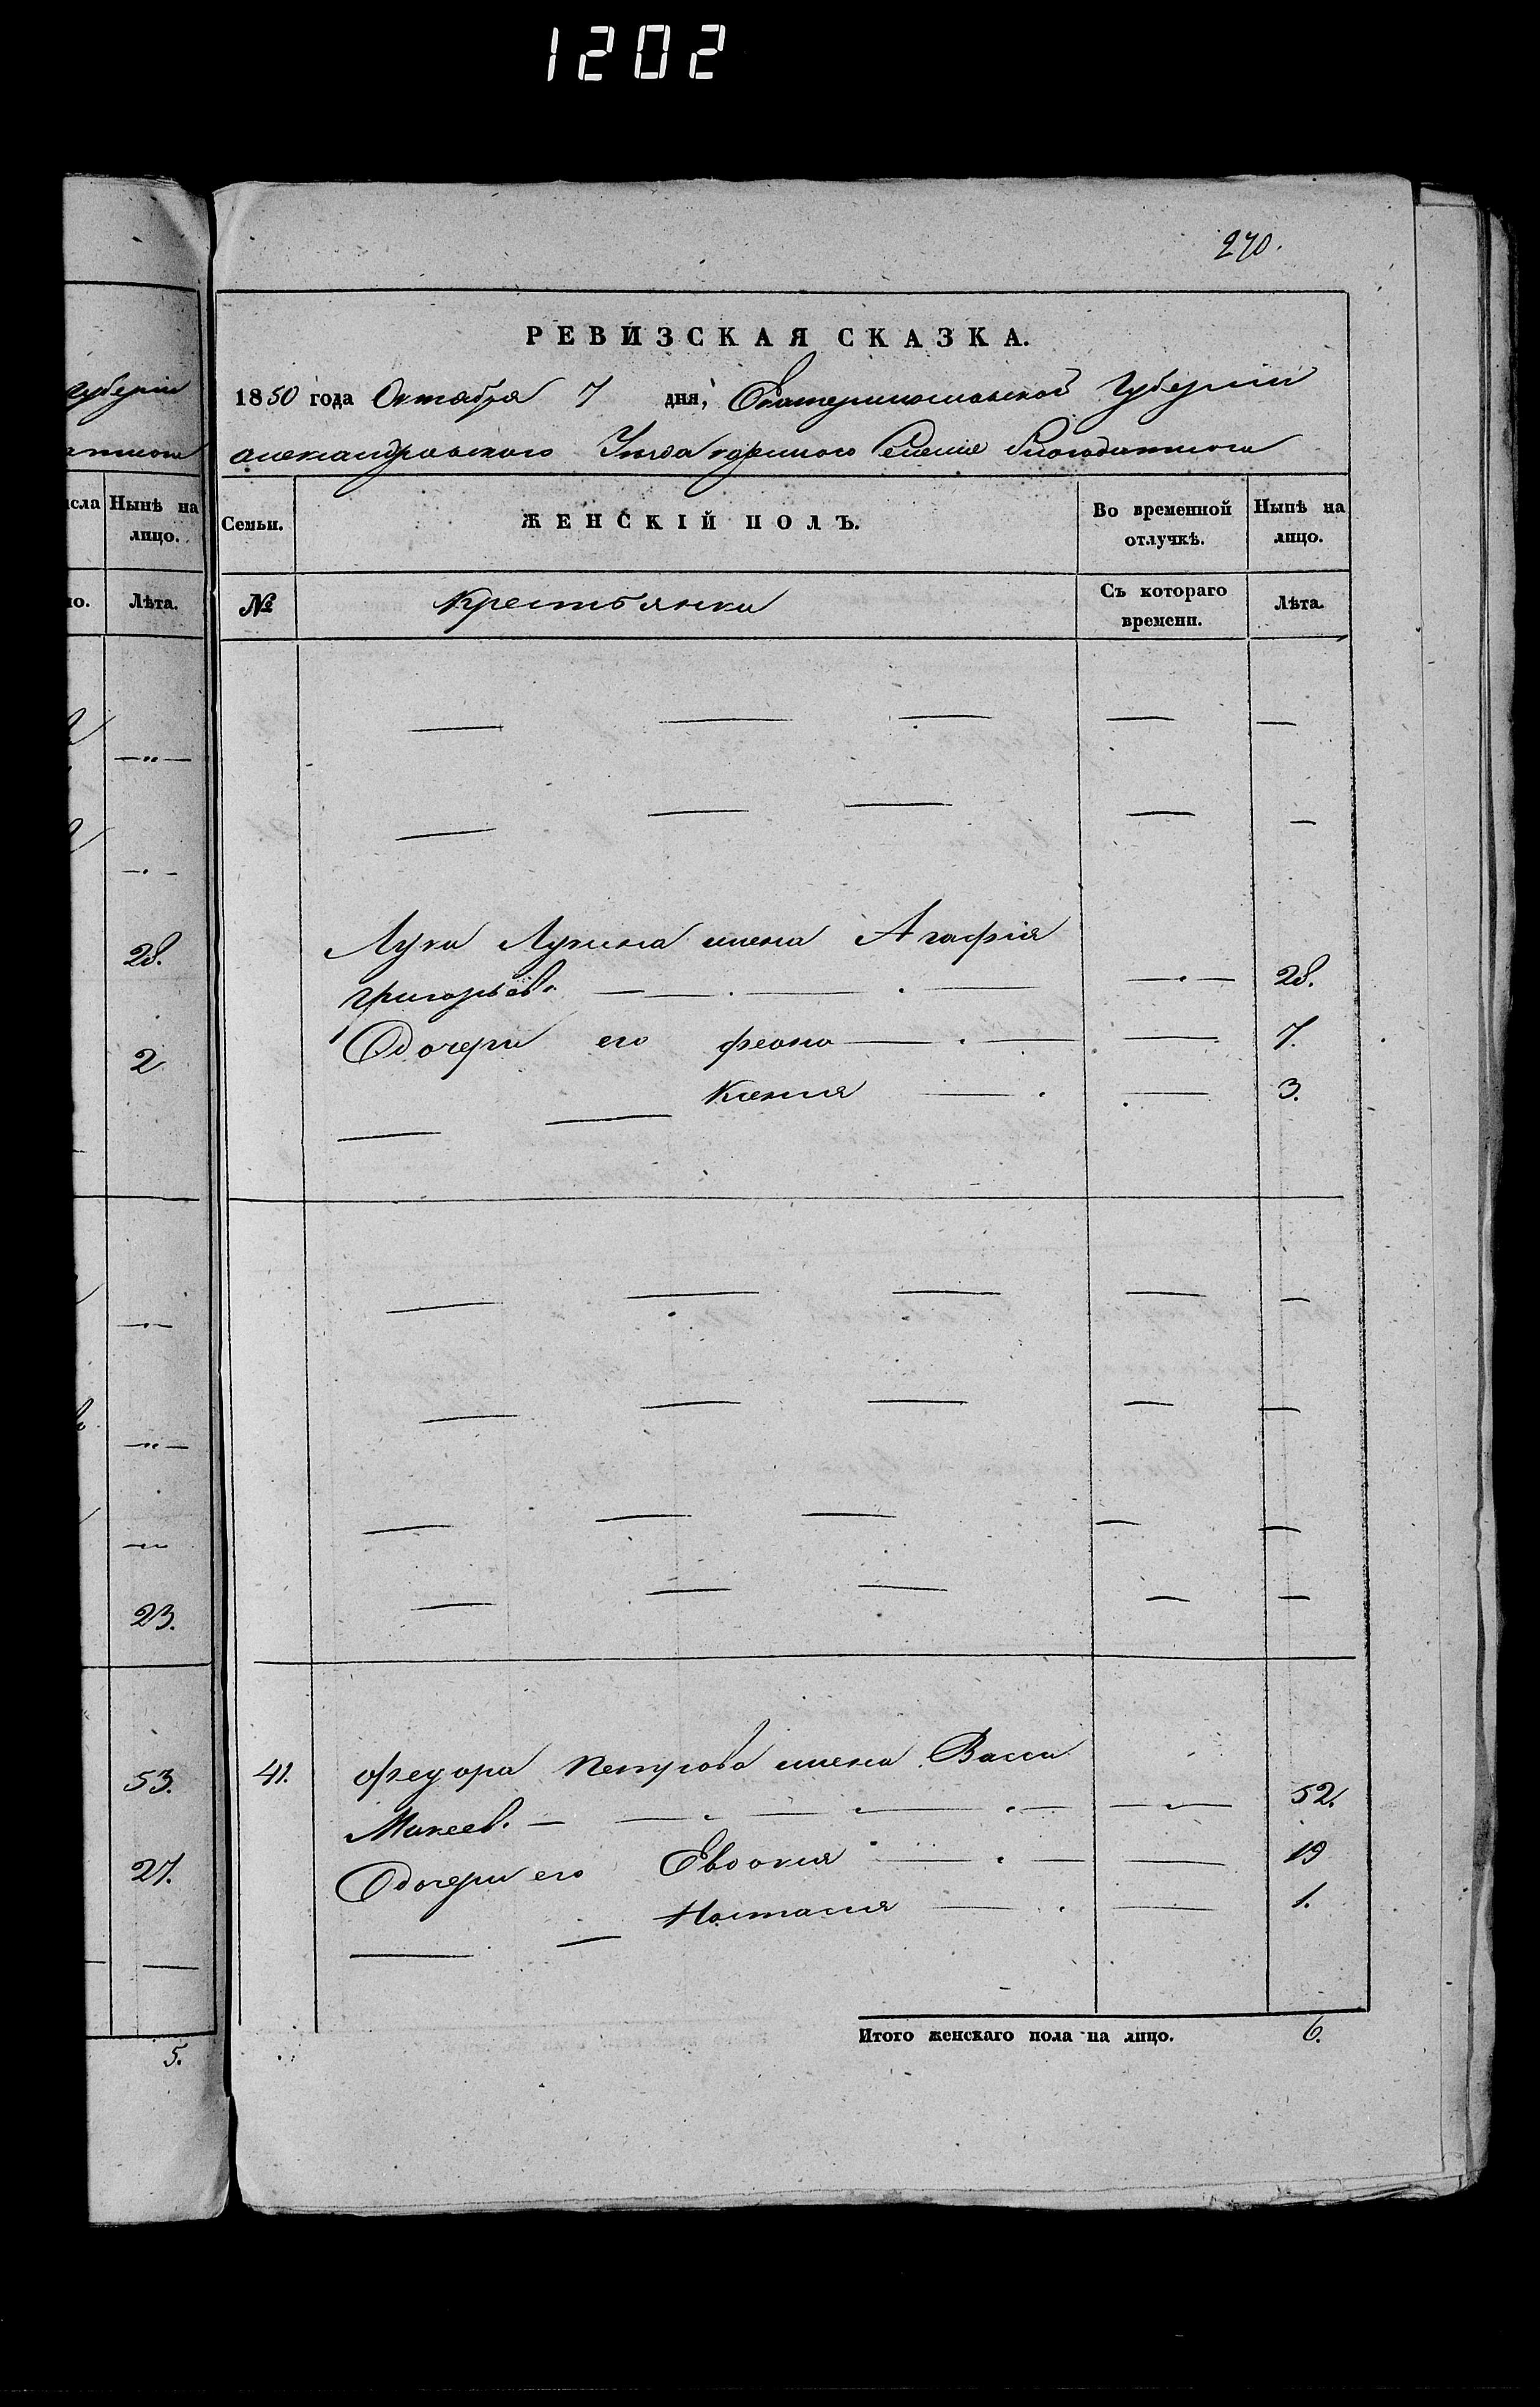 1202
270.
Губерніи
сла Нынѣ на
лицо.
но. Лѣта.
28.
2
23.
53.
27.
5.
РЕВИЗСКАЯ СКАЗКА.
1850 года Октября 7 дня, Екатеринославской Губерніи
александровскаго Уѣзда казеннаго Селенія Благодатнаго
Семьи. ЖЕНСКІЙ ПОЛЪ. Во временной Нынѣ на
отлучкѣ. лицо.
№ Крестьянки Съ котораго Лѣта.
времени.
Луки Лукина жена Агафія
Григорьев. 28.
Дочери его феона 7.
Ксенія 3.
41. Федора Петрова жена Васса
Макеев. 52.
Дочери его Евдокия 19
Настасия 1.
Итого женскаго пола на лицо. 6.